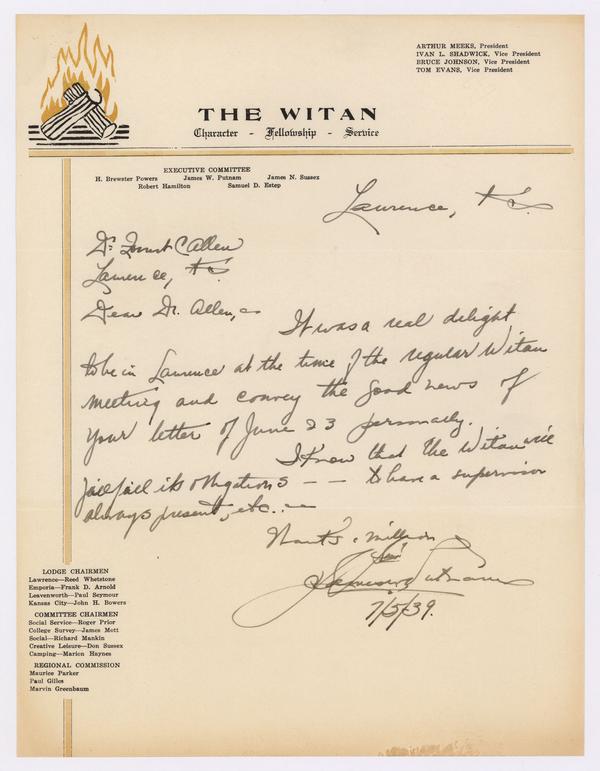 ARTHUR MEEKS, President
IVAN L. SHADWICK, Vice President
BRUCE JOHNSON, Vice President
TOM EVANS, Vice President
THE WITAN
Character - Fellowship - Service
EXECUTIVE COMMITTEE
H. Brewster Powers James W. Putnam James N. Sussex
Robert Hamilton Samuel D. Estep
Lawrence, Ks.
Dr. Forrest C Allen
Lawrence, Ks.
Dear Dr. Allen,
It was a real delight
to be in Lawrence at the time of the regular Witan
meeting and convey the good news of
your letter of June 23 personally.
I know that the Witan will
fulfill its obligations - - to have a supervisor
always present, etc.
Thanks a million
Jim
James W. Putnam
7/5/39.
LODGE CHAIRMEN
Lawrence—Reed Whetstone
Emporia—Frank D. Arnold
Leavenworth—Paul Seymour
Kansas City—John H. Bowers
COMMITTEE CHAIRMEN
Social Service—Roger Prior
College Survey—James Mott
Social—Richard Mankin
Creative Leisure—Don Sussex
Camping—Marion Haynes
REGIONAL COMMISSION
Maurice Parker
Paul Gilles
Marvin Greenbaum